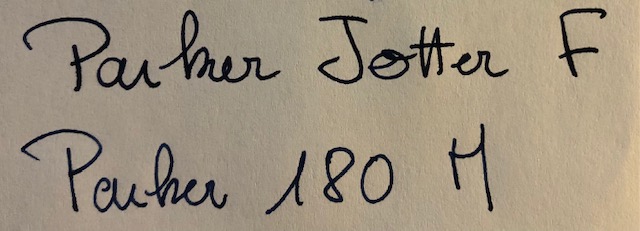 Parker Jotter F
Parker 180 M